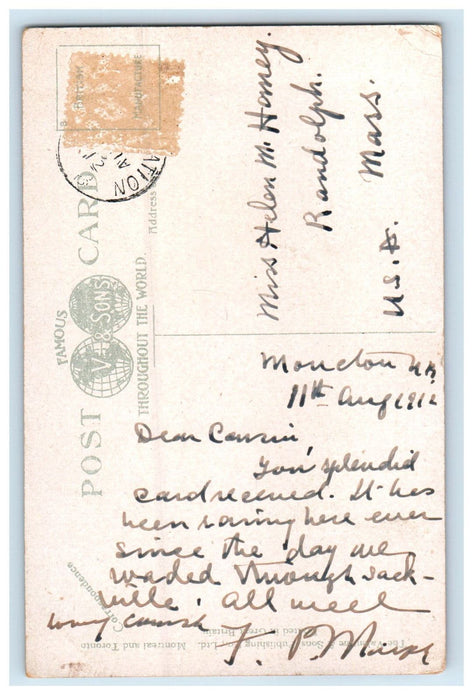 POST CARD
FAMOUS
V. & SONS
THROUGHOUT THE WORLD.
MANUFACTURE
Address
ATION
Miss Helen M. Haney.
Randolph.
Mass.
U.S.A.
Moncton N.B.
11th Aug 1912
Dear Cousin,
Your splendid
card received. It has
been raining here ever
since the day we
waded through Sack-
ville. All well
your cousin F. P.
Correspondence
The Valentine & Sons Publishing Co., Ltd. Montreal and Toronto
Printed in Great Britain